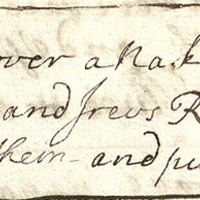 over a Rak
and Irevs R
them - and pu